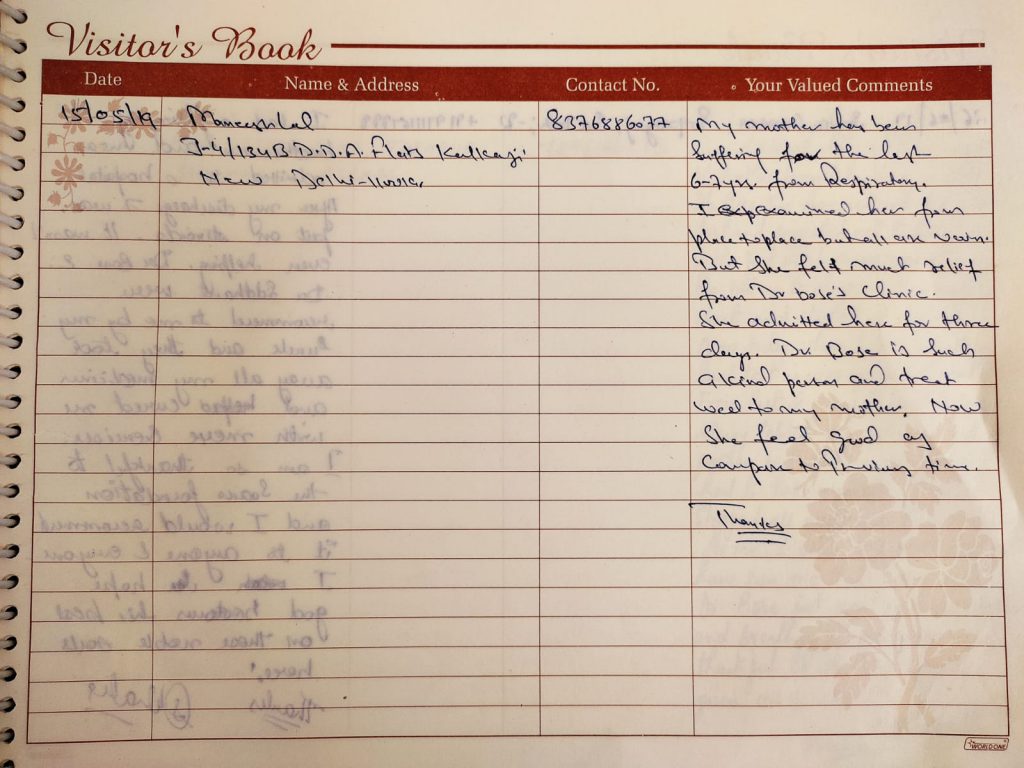 Visitor's Book
Date Name & Address Contact No. Your Valued Comments
15/05/19 Maneeshlal 8376886077 My mother has been
J-4/134B D.D.A. Flats Kalkaji suffering for the last
New Delhi-110019. 6-7yrs. from Respiratory.
I examined her from
place to place but all are vain.
But she felt much relief
from Dr bose's Clinic.
She admitted here for three
days. Dr. Bose is such
a kind person and treat
well to my mother. Now
She feel good as
Compare to Previous time.
Thanks
WORLDONE